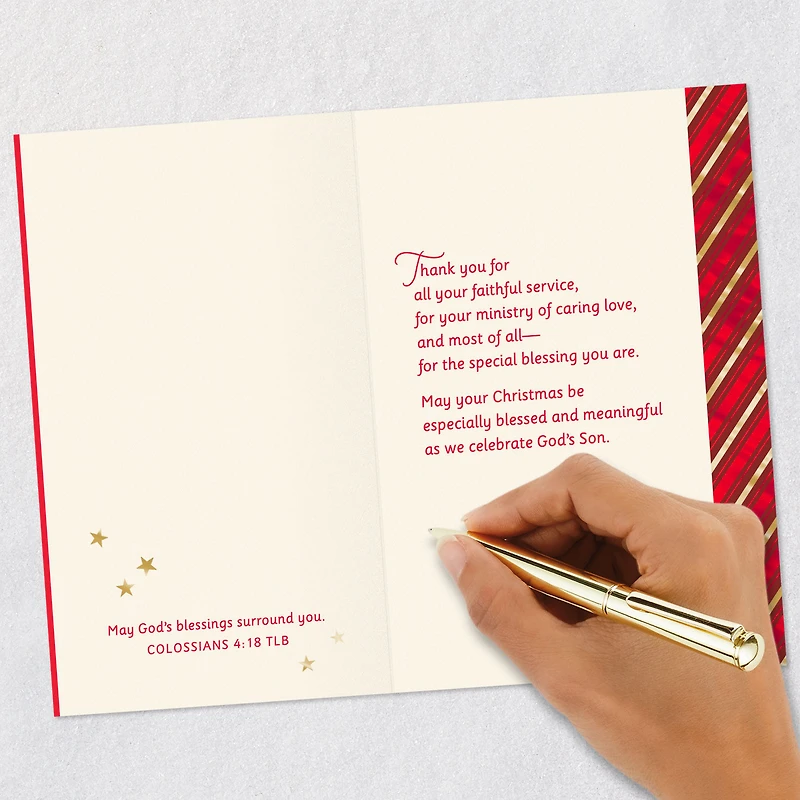 May God's blessings surround you.
COLOSSIANS 4:18 TLB
Thank you for
all your faithful service,
for your ministry of caring love,
and most of all—
for the special blessing you are.
May your Christmas be
especially blessed and meaningful
as we celebrate God's Son.